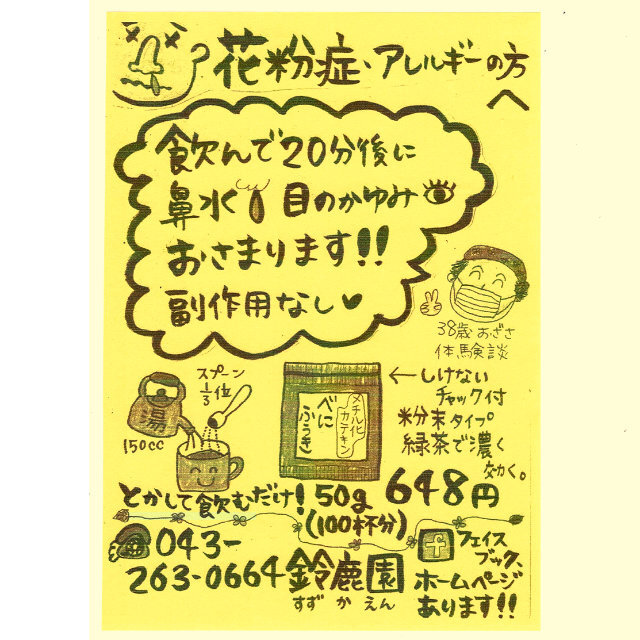 花粉症・アレルギーの方へ
飲んで20分後に
鼻水 目のかゆみ
おさまります!!
副作用なし
38歳 おざさ
体験談
スプーン
1/3位
湯
150cc
メチル化
カテキン
べに
ふうき
←しけない
チャック付
粉末タイプ
緑茶で濃く
効く。
とかして飲むだけ!
50g 648円
(100杯分)
043-
263-0664
鈴鹿園
すずかえん
f フェイス
ブック、
ホームページ
あります!!